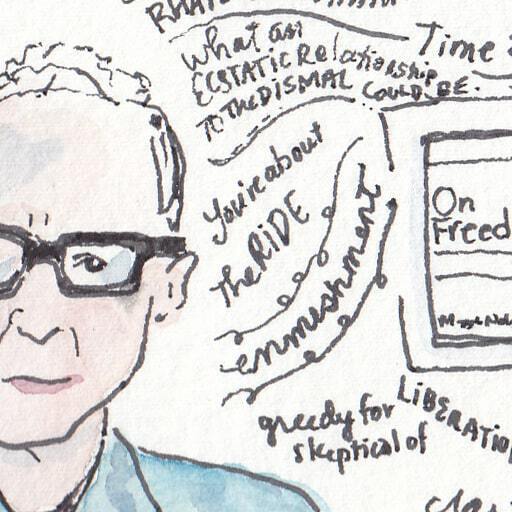 What an
ECSTATIC RElationship
TO THE DISMAL COULD BE.
Time
You're about
the RiDE
enmeshment
On
Freed
greedy for
LiBERATIO
skeptical of